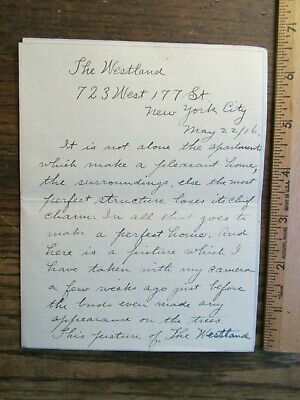 The Westland
723 West 177 St
New York City
May 22/16.
It is not alone the apartments
which make a pleasant home,
the surroundings, else the most
perfect structure loses its chief
charm. In all that goes to
make a perfect home. And
here is a picture which I
have taken with my camera
a few weeks ago just before
the buds even made any
appearance on the trees
This picture of The Westland